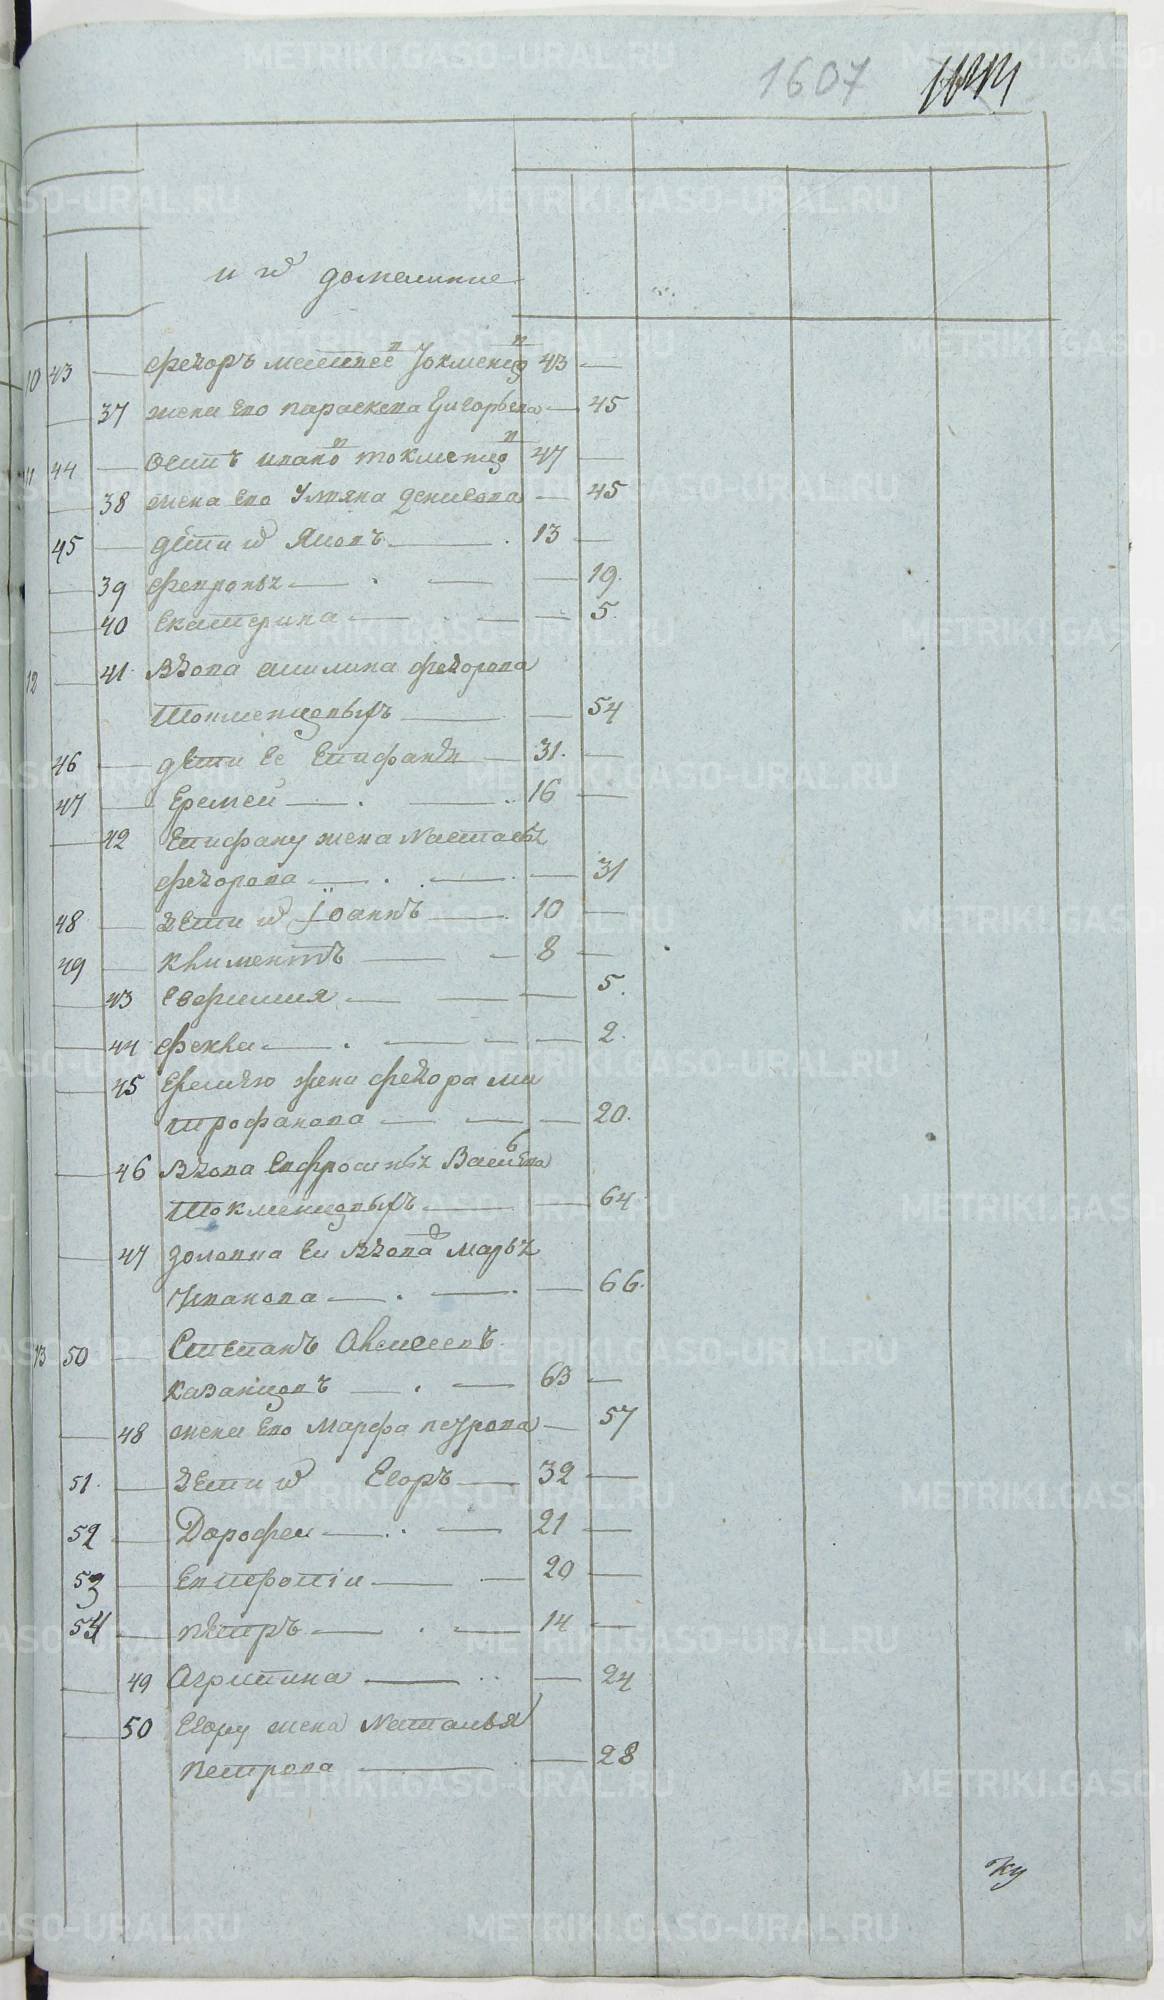 1607
и ихъ домашние
10 43 — Федоръ Матвеевъ Токменцовъ 43 —
— 37 жена его параскева григорьева — 45
11 44 — осипъ иванов токменцов 47 —
— 38 жена его Ульяна денисова — 45
45 — дети их Яковъ — 13 —
— 39 февронья — — 19.
— 40 екатерина — — 5.
12 — 41 Вдова акилина федорова
токменцовыхъ — — 54
46 — дети ее епифаней — 31. —
47 — Еремей — 16 —
— 42 епифану жена Настасья
федорова — — 31
48 — дети их Иоаннъ — 10 —
49 — климентъ — 8 —
— 43 евфимия — — 5.
— 44 фекла — — 2.
— 45 Еремею жена федора ми
трофанова — — 20.
— 46 Вдова евфросинья Васильева
токменцовыхъ — — 64
— 47 золовка ей вдова марья
Иванова — — 66.
13 50 — Степанъ Алексеевъ
казанцовъ — 63 —
— 48 жена его марфа петрова — 57
51. — дети их Егоръ — 32 —
52 — Дорофеи — 21 —
53 — евтропіи — 20 —
54 — петръ — 14 —
— 49 Агрипина — — 24
— 50 Егору жена Наталья
петрова — — 28
ку
METRIKI.GASO-URAL.RU